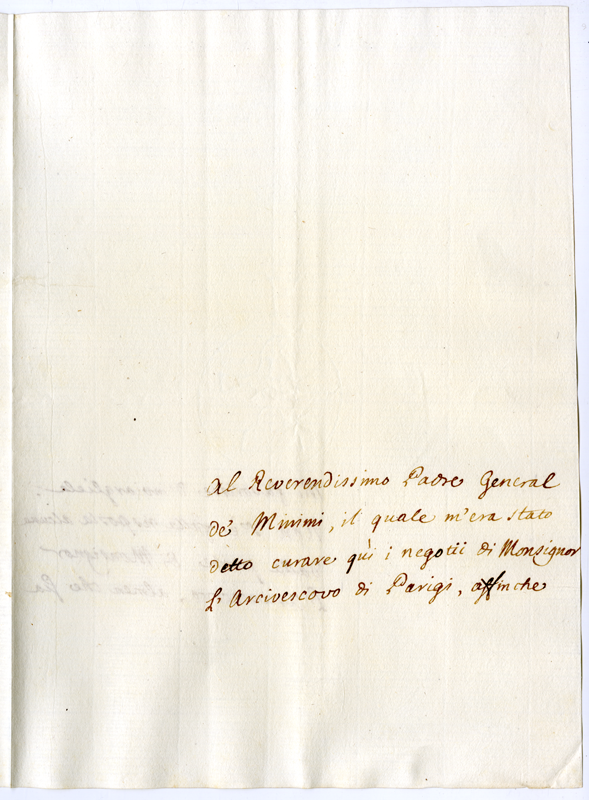 Al Reverendissimo Padre General
de' Minimi, il quale m'era stato
detto curare quì i negotii di Monsignor
L'Arcivescovo di Parigi, affinche